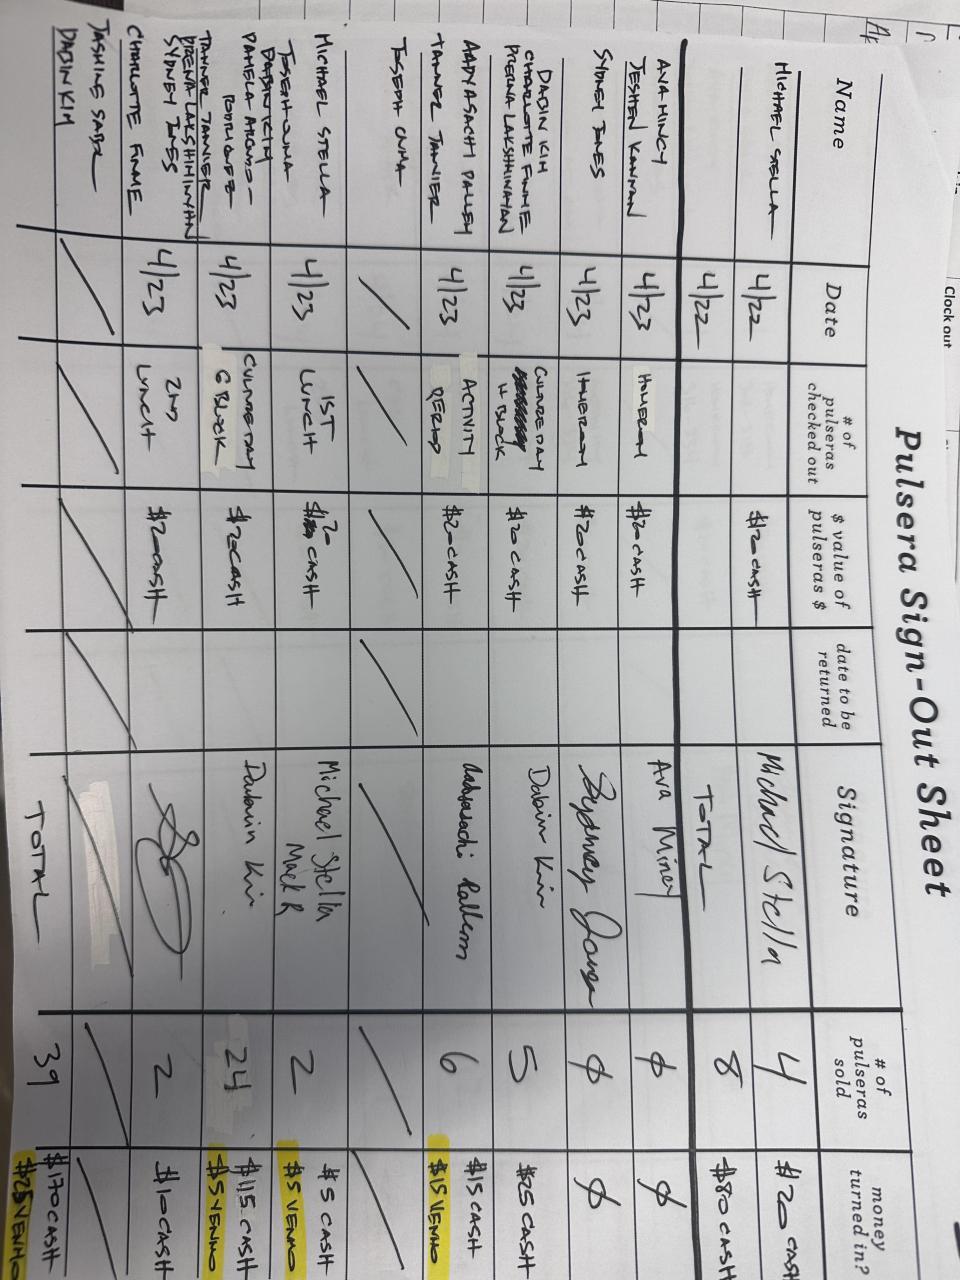 Clock out
Pulsera Sign-Out Sheet
Name
Date
# of
pulseras
checked out
$ value of
pulseras $
date to be
returned
Signature
# of
pulseras
sold
money
turned in?
MICHAEL STELLA
4/22
$120 CASH
Michael Stella
4
$20 CASH
4/22
TOTAL
8
$80 CASH
AVA MINCY
JESHEN KANNAN
4/23
HOMEROOM
$20 CASH
Ava Mincy
ϕ
ϕ
SYDNEY JONES
4/23
HOMEROOM
$20 CASH
Sydney Jones
ϕ
ϕ
DABIN KIM
CHARLOTTE FINME
PRERNA LAKSHINAYAN
4/23
CULTURE DAY
H BLOCK
$20 CASH
Dabin Kim
5
$25 CASH
AADYASACHI PALLEM
TANNER TANNIER
4/23
ACTIVITY
PERIOD
$20 CASH
6
$15 CASH
$15 VENMO
JOSEPH ONMA
MICHAEL STELLA
JOSEPH ONMA
4/23
1ST
LUNCH
$20 CASH
Michael Stella
Mack R
2
$5 CASH
$5 VENMO
DABIN KIM
PAMELA
RODRIGUEZ
TANNER TANNIER
4/23
CULTURE DAY
G BLOCK
$20 CASH
Dabin Kim
24
$115 CASH
$5 VENMO
SYDNEY JONES
CHARLOTTE FINME
4/23
2ND
LUNCH
$20 CASH
2
$10 CASH
JASHINE SABR
DABIN KIM
TOTAL
39
$170 CASH
$25 VENMO